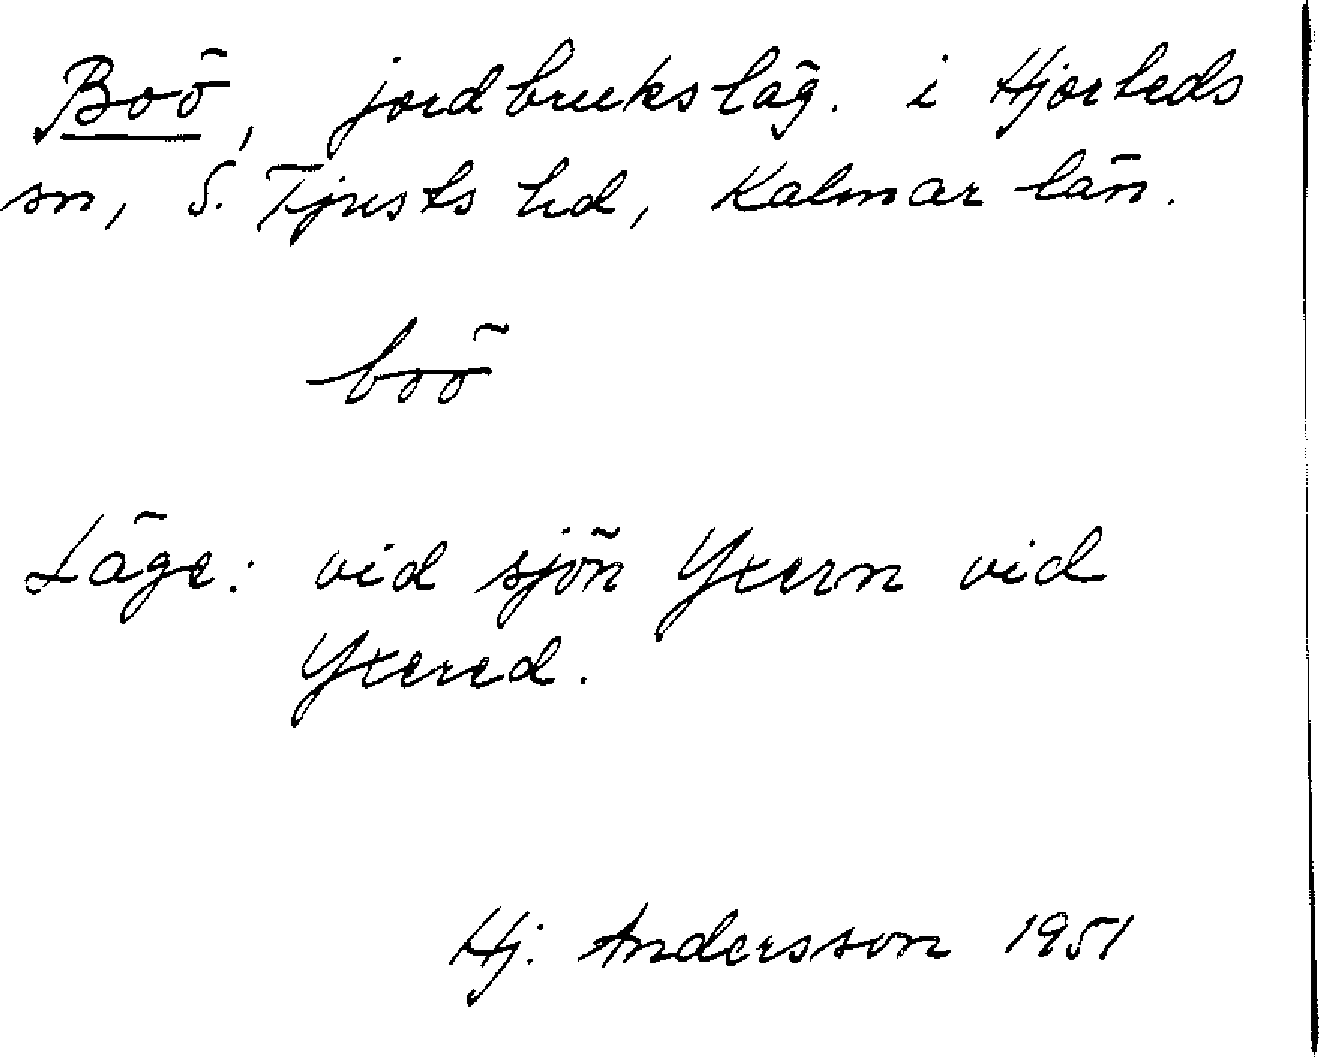 Boö, jordbruksläg. i Hjorteds
sn, S. Tjusts hd, Kalmar län.
boö
Läge: vid sjön Yxern vid
Yxered.
Hj. Andersson 1951